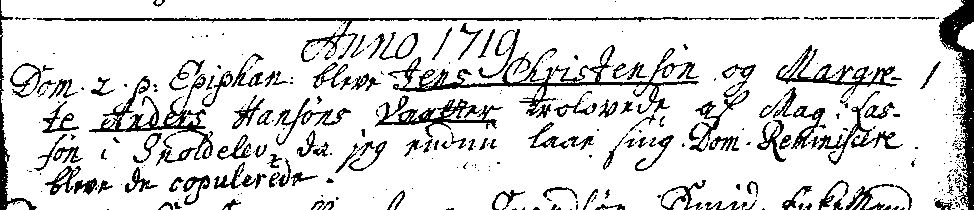 Anno 1719
Dom. 2. p. Epiphan. bleve Jens Christensøn og Margre-
te Anders Hansøns Daatter trolovede af Mag. Las-
søn i Snoldelev, da jeg endnu laae siug. Dom. Reminiscere
bleve de copulerede.
Smid